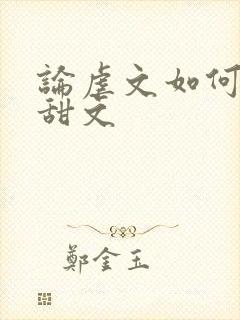 論虐文如何
甜文
鄭金玉